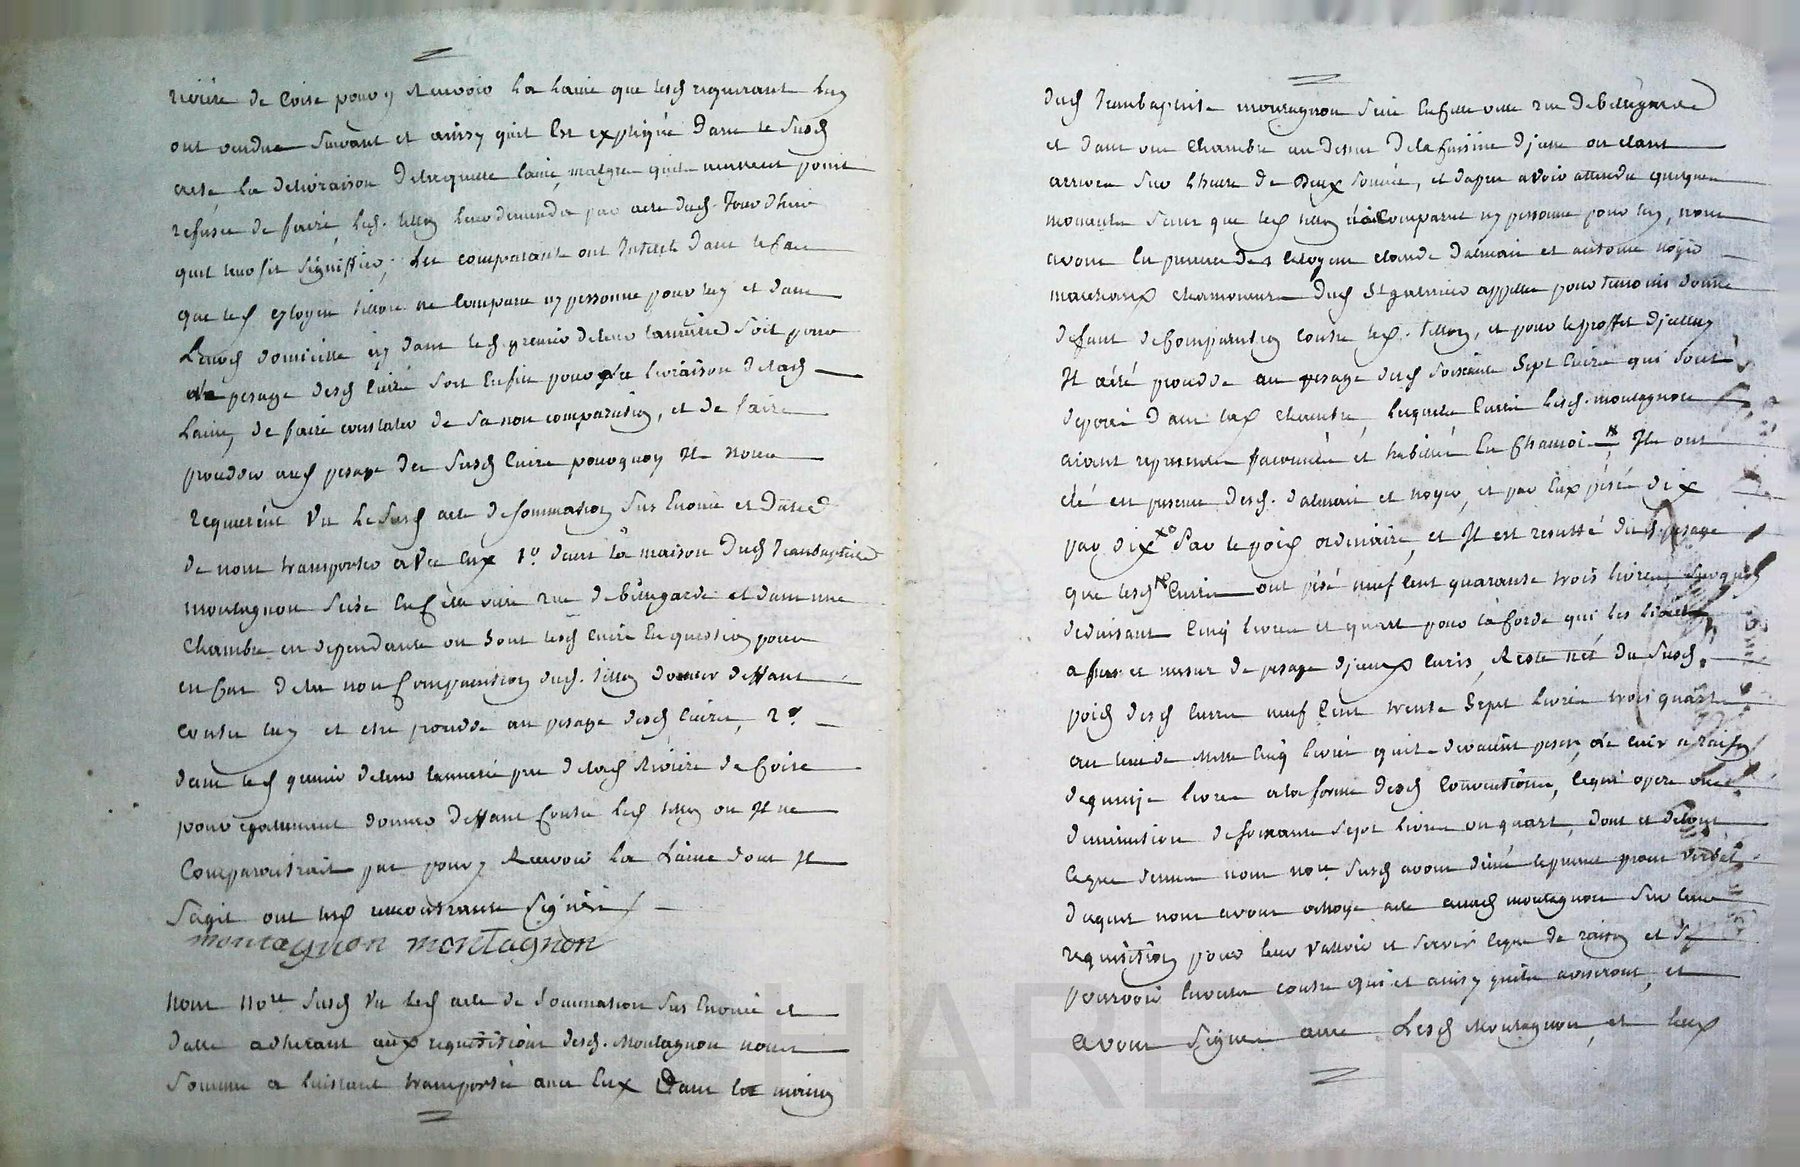 rivière de Coise pour y Recevoir La Laine que lesd requerants luy
ont vendue suivant et ainsy quil Est expliqué Dans le Susd
acte, La delivraison de laquelle laine, malgré quils neussent point
refusée de faire, led. tillon leur demande par acte dud. Jour dhier
quil leur fit signiffier; Les comparants ont Intérêt dans le cas
que led citoyen tillon ne Compare ny personne pour luy et dans
Leurd domicille ny dans led grenier de leur tannerie soit pour
le pesage desd Cuirs soit Enfin pour la livraison de lad
Laine, de faire constater de sa non comparution, et de faire
proceder aud pesage des Susd Cuirs pourquoy Ils nous
Requierent Vu Le Susd acte de sommation Sus Enoncé et Datté
de nous transporter avec Eux 1º. dans la maison Dud Jeanbaptiste
montagnon Scise En cette ville rue de Bellegarde et dans une
Chambre en dependante ou Sont lesd Cuirs En question pour
en Cas de la non Comparution dud. tillon donner deffaut
contre luy et etre procedé au pesage desd Cuirs, 2º.
dans led grenier de leur tannerie près de lad Rivière de Coise
pour egalement donner deffaut Contre led tillon ou Il ne
Comparoitrait pas pour y Recevoir La Laine dont Il
Sagit ont lesd requerants Signés
montagnon montagnon
nous nore Susd Vu led acte de Sommation Sus Enoncé et
datté adherant aux requisitions desd. Montagnon nous
Sommes a linstant transportés avec Eux Dans la maison
dud Jeanbaptiste montagnon Scise En cette ville rue de Bellegarde
et dans une Chambre au dessus De la Cuisine dicelle ou etant
arrivés sur Lheure de Deux Sonnée, et daprès avoir attendu quelques
moments sans que led tillon nai Comparut ny personne pour luy, nous
avons En presence des Citoyens claude dalmais et antoine noyer
marchands chamoiseurs Dud St galmier appellés pour temoins donné
defaut de Comparution Contre led. tillon, et pour le proffit dicelluy
Il a été procedé au pesage desd soixante Sept Cuirs qui sont
deposés Dans lad chambre, lesquels Cuirs lesd. montagnon
aiant representés faconnés et habillés En Chamois, Ils ont
été en presence desd. dalmais et noyer, et par Eux pésés dix
par dix Par le poid ordinaire, et Il est resulté dud. pesage
que lesd Cuirs ont pésé neuf Cent quarante trois livres Surquoy
deduisant Cinq livres et quart pour la Corde qui les liait
a fur et mesure de pesage diceux Cuirs, Reste net du Susd.
poid desd Cuirs neuf Cent trente Sept livres trois quarts
au lieu de Mille Cinq livres quils devaient peser de cuir a raison
de quinze livres a la forme desd Conventions, ce qui opere une
diminution de soixante sept livres un quart, dont et de tout
ce que dessus nous nore Susd avons dressé le present procès verbal
duquel nous avons octroyé acte auxd montagnon Sur leur
requisition pour leur Valoir et servir ce que de raison et se
pourvoir Ensuite contre qui et ainsy quils aviseront, et
avons Signé avec Lesd Montagnon, et Eux